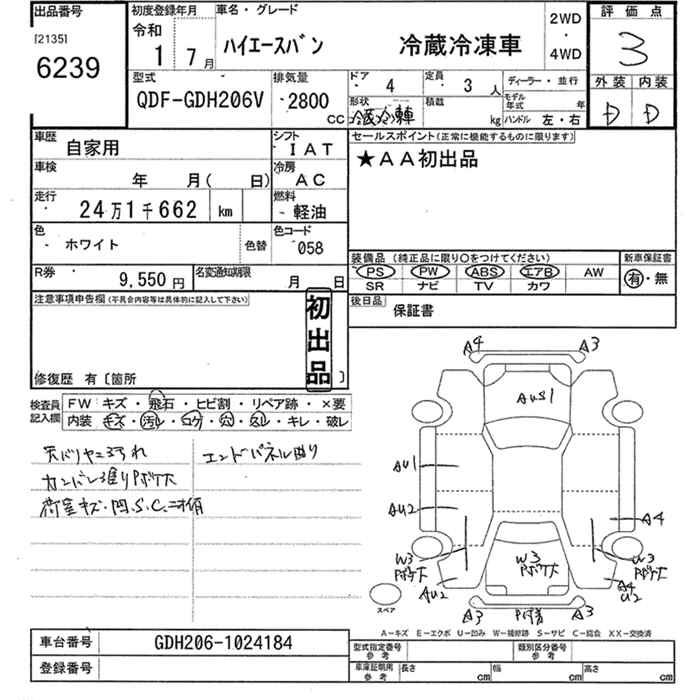 出品番号
[2135]
6239
初度登録年月
令和
1 7月
車名・グレード
ハイエースバン 冷蔵冷凍車
2WD
・
4WD
評価点
3
外装 内装
D D
型式
QDF-GDH206V
排気量
2800
CC
ドア
4
定員
3 人
ディーラー・並行
形状
冷蔵冷凍車
積載
kg
モデル年式
年
ハンドル 左・右
車歴
自家用
シフト
IAT
車検
年 月( 日)
冷房
AC
走行
24万1千662 km
燃料
軽油
色
ホワイト
色替
色コード
058
R券
9,550円
名変通知期限
月 日
セールスポイント(正常に機能するものに限ります)
★AA初出品
装備品(純正品に限り○をつけてください)
PS PW ABS エアB AW
SR ナビ TV カワ
新車保証書
有・無
後日品
保証書
注意事項申告欄(不具合内容等は具体的に記入して下さい)
初出品
修復歴 有〔箇所 〕
検査員記入欄
FW キズ・飛石・ヒビ割・リペア跡・×要
内装 キズ・汚レ・コゲ・穴・スレ・キレ・破レ
天バリヤニ汚れ
エンドパネル曲り
荷室キズ・凹.S.C.
A4 A3
AUS1
AU1
AU2
A4
W3
W3
W3
AU2
A4
U2
A3 A3
スペア
A－キズ E－エクボ U－凹み W－補修跡 S－サビ C－腐食 XX－交換済
車台番号
GDH206-1024184
登録番号
型式指定番号
参考
類別区分番号
参考
車庫証明用
参考
長さ cm 幅 cm 高さ cm